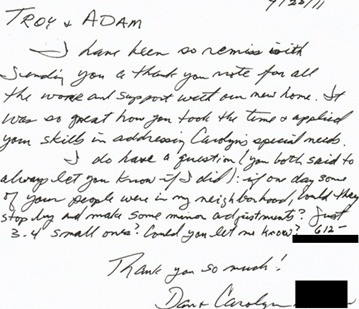 9/23/11
TROY & ADAM
I have been so remiss with
sending you a thank you note for all
the work and support with our new home. It
was so great how you took the time & applied
your skills in addressing Carolyn's special needs.
I do have a question (you both said to
always let you know if I did): if one day some
of your people were in my neighborhood, could they
stop by and make some minor adjustments? Just
3-4 small ones? Could you let me know? 612-
Thank you so much!
Dan & Carolyn